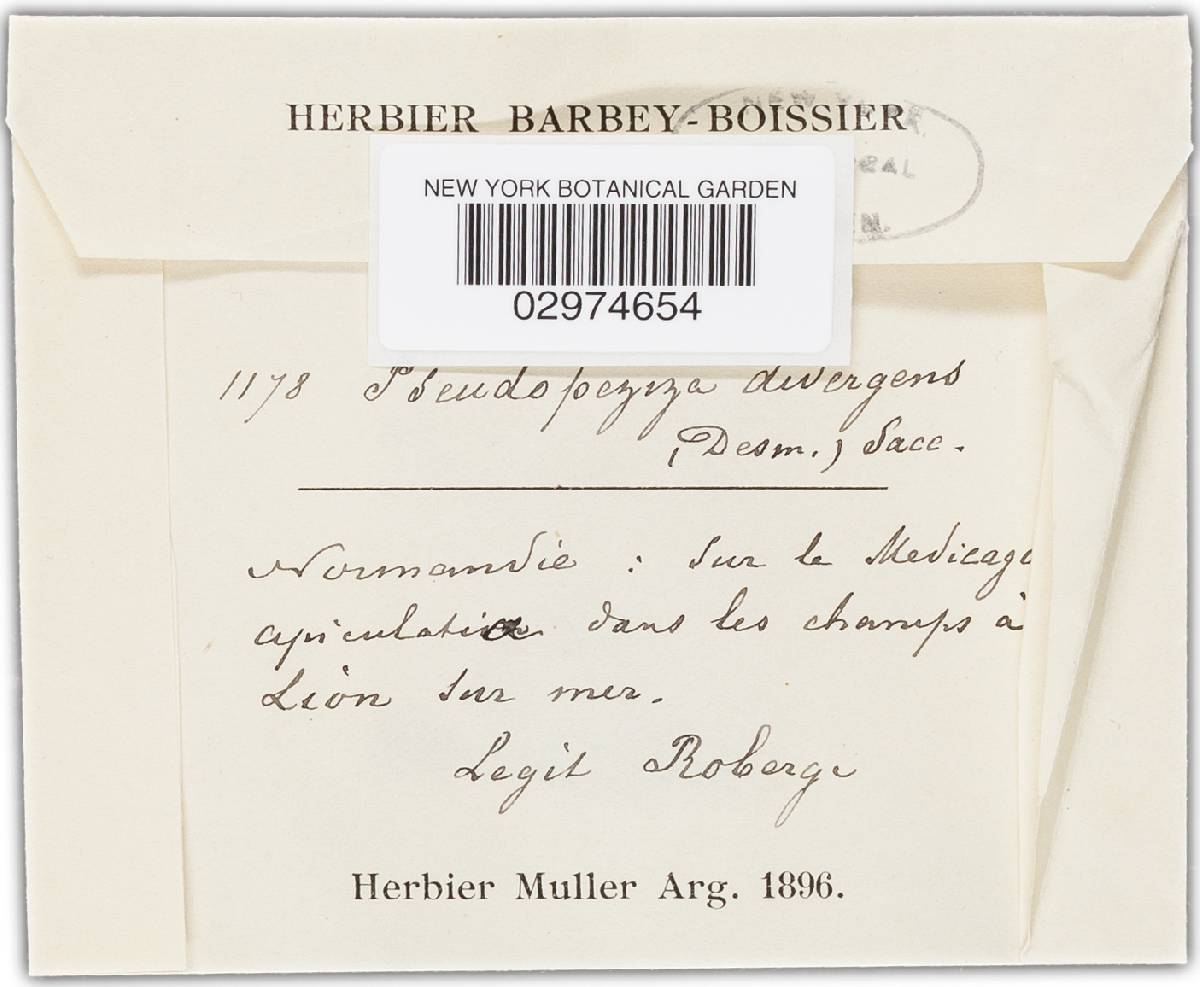 HERBIER BARBEY-BOISSIER
NEW YORK BOTANICAL GARDEN
02974654
1178 Pseudopeziza divergens
(Desm.) Sacc.
Normandie : sur le Medicago
apiculata dans les champs à
Lion sur mer.
Legit Roberge
Herbier Muller Arg. 1896.